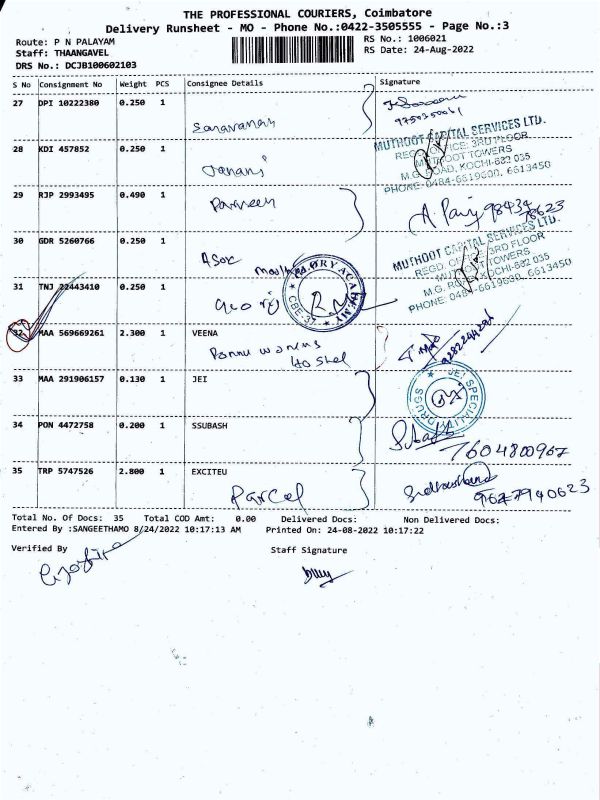 THE PROFESSIONAL COURIERS, Coimbatore
Delivery Runsheet - MO - Phone No.:0422-3505555 - Page No.:3
Route: P N PALAYAM
RS No.: 1006021
Staff: THAANGAVEL
RS Date: 24-Aug-2022
DRS No.: DCJB100602103
S No Consignment No Weight PCS Consignee Details Signature
27 DPI 10222380 0.250 1
Saravanan
28 KDI 457852 0.250 1
Janani
MUTHOOT CAPITAL SERVICES LTD.
REGD. OFFICE: 3RD FLOOR
MUTHOOT TOWERS
M.G. ROAD, KOCHI-682 035
PHONE: 0484-6619600, 6613450
29 RJP 2993495 0.490 1
Parveen
30 GDR 5260766 0.250 1
Asok
MUTHOOT CAPITAL SERVICES LTD.
3RD FLOOR
M.G. ROAD, KOCHI-682 035
PHONE: 0484-6619600, 6613450
31 TNJ 22443410 0.250 1
CBE-37
32 MAA 569669261 2.300 1 VEENA
Ponnu womens
Hostel
33 MAA 291906157 0.130 1 JEI
JEI SPECIALITY DRUGS
34 PON 4472758 0.200 1 SSUBASH
Subash
7604800967
35 TRP 5747526 2.800 1 EXCITEU
Parcel
Total No. Of Docs: 35 Total COD Amt: 0.00 Delivered Docs: Non Delivered Docs:
Entered By :SANGEETHAMO 8/24/2022 10:17:13 AM Printed On: 24-08-2022 10:17:22
Verified By Staff Signature